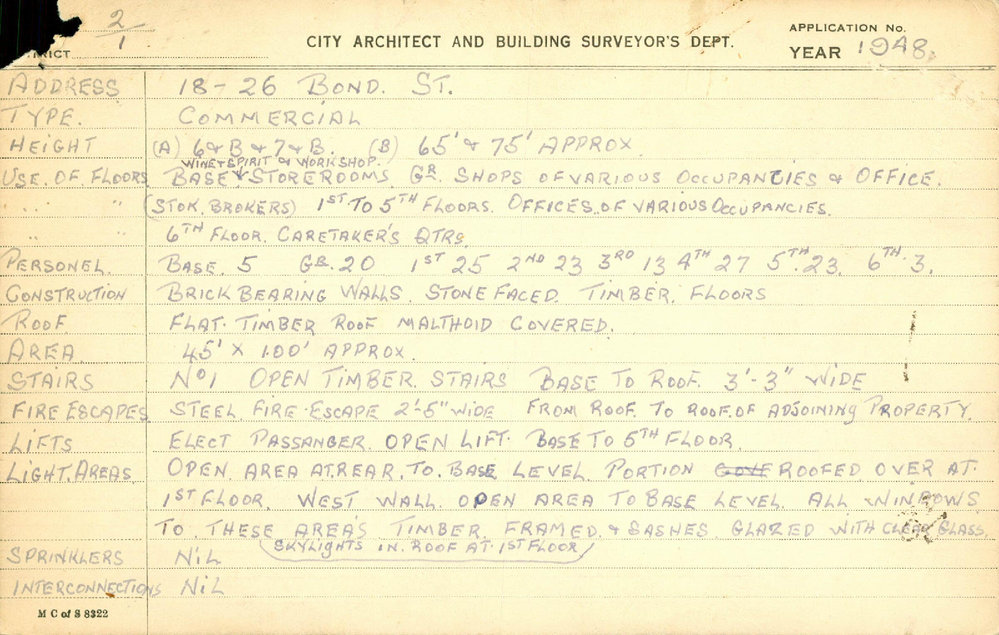 2/1
RICT
CITY ARCHITECT AND BUILDING SURVEYOR'S DEPT.
APPLICATION No.
YEAR 1948.
ADDRESS 18-26 BOND. ST.
TYPE. COMMERCIAL
HEIGHT (A) 6 & B & 7 & B. (B) 65' & 75' APPROX.
WINE & SPIRIT & WORKSHOP.
USE. OF FLOORS BASE & STOREROOMS. GR. SHOPS OF VARIOUS OCCUPANCIES & OFFICE.
" " (STOK. BROKERS) 1ST TO 5TH FLOORS. OFFICES. OF VARIOUS OCCUPANCIES.
" " 6TH FLOOR. CARETAKER'S QTRS.
PERSONEL. BASE. 5 GR. 20 1ST 25 2ND 23 3RD 13 4TH 27 5TH. 23. 6TH. 3.
CONSTRUCTION BRICK BEARING WALLS. STONE FACED. TIMBER. FLOORS
ROOF FLAT. TIMBER ROOF MALTHOID COVERED.
AREA 45' X 100' APPROX.
STAIRS No 1 OPEN TIMBER. STAIRS BASE TO ROOF. 3'-3" WIDE
FIRE ESCAPES STEEL. FIRE. ESCAPE 2'-5" WIDE FROM ROOF. TO ROOF. OF ADJOINING PROPERTY.
LIFTS ELECT PASSANGER. OPEN LIFT. BASE TO 5TH FLOOR.
LIGHT. AREAS OPEN AREA AT. REAR. TO. BASE LEVEL. PORTION ROOFED OVER AT.
1ST FLOOR. WEST WALL. OPEN AREA TO BASE LEVEL. ALL WINDOWS
TO THESE AREAS TIMBER. FRAMED. & SASHES GLAZED WITH CLEAR GLASS.
(SKYLIGHTS IN ROOF AT 1ST FLOOR)
SPRINKLERS NIL
INTERCONNECTIONS NIL
M C of S 8322